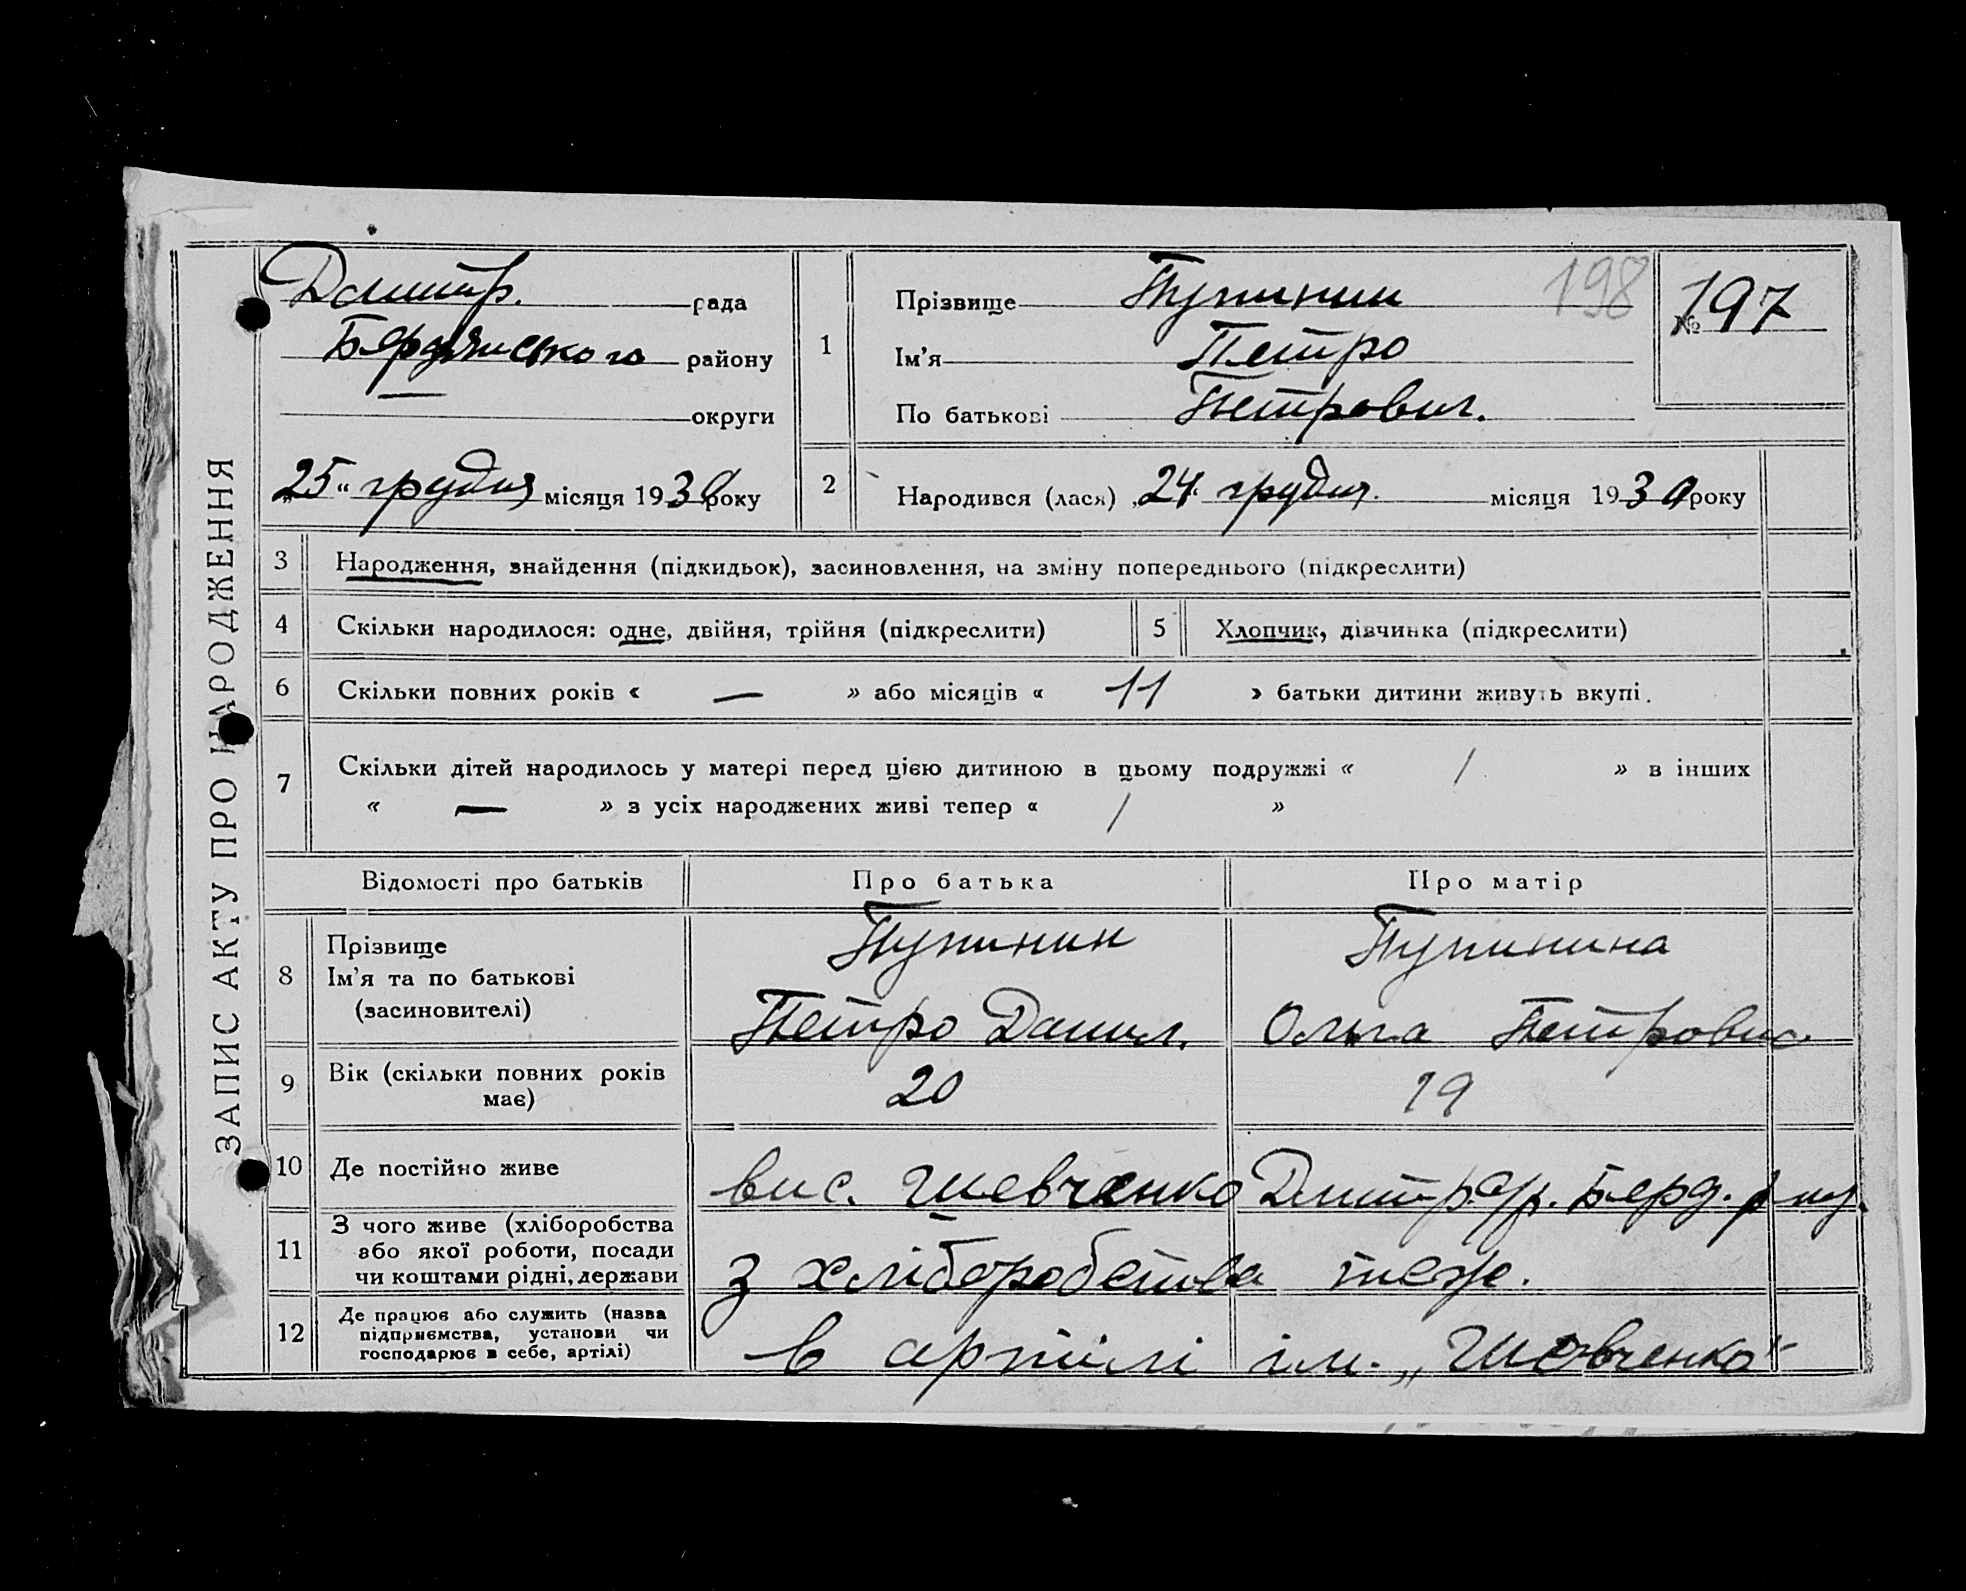 ЗАПИС АКТУ ПРО НАРОДЖЕННЯ
Дмитр. рада
Бердянського району
— округи
„25“ грудня місяця 1930 року
1
Прізвище Пупинин
Ім’я Петро
По батькові Петрович.
198
№ 197
2 Народився (лася) „24“ грудня. місяця 1930 року
3 Народження, знайдення (підкидьок), засиновлення, на зміну попереднього (підкреслити)
4 Скільки народилося: одне, двійня, трійня (підкреслити) 5 Хлопчик, дівчинка (підкреслити)
6 Скільки повних років « — » або місяців « 11 » батьки дитини живуть вкупі.
7 Скільки дітей народилось у матері перед цією дитиною в цьому подружжі « / » в інших
« — » з усіх народжених живі тепер « / »
Відомості про батьків Про батька Про матір
8 Прізвище
Ім’я та по батькові
(засиновителі)
Пупинин
Петро Данил.
Пупинина
Ольга Петровис.
9 Вік (скільки повних років
має)
20 19
10 Де постійно живе
вис. Шевченко Дмитр. с/р. Берд. р-ну.
11 З чого живе (хліборобства
або якої роботи, посади
чи коштами рідні, держави
з хліборобства теж.
12 Де працює або служить (назва
підприємства, установи чи
господарює в себе, артілі)
в артілі ім. „Шевченко“